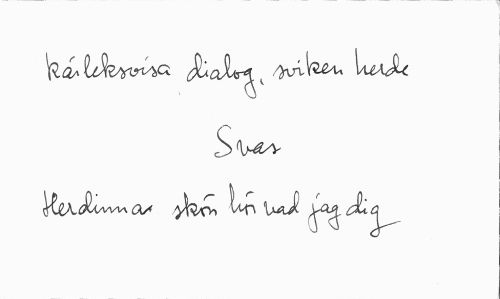 kärleksvisa dialog, sviken herde
Svar
Herdinna skön hör vad jag dig